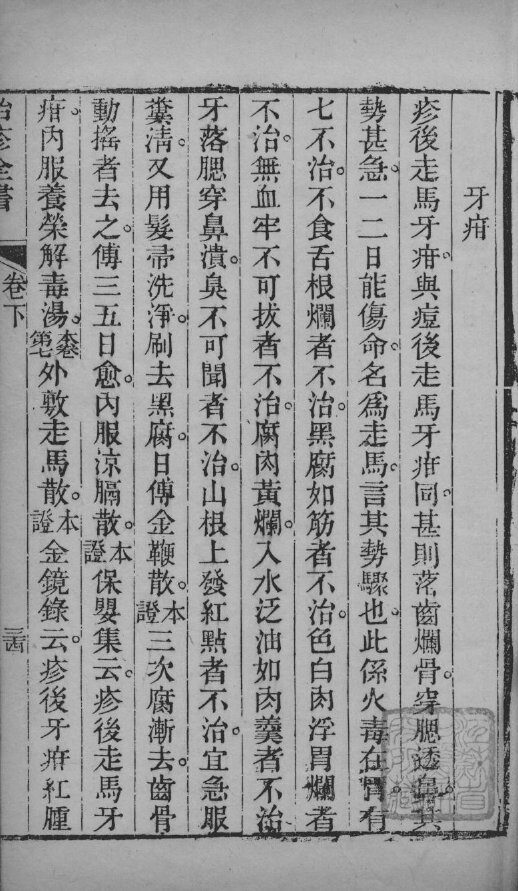 牙疳
疹後走馬牙疳。與痘後走馬牙疳同。甚則落齒爛骨。穿腮透鼻。其
勢甚急。一二日能傷命。名爲走馬。言其勢驟也。此係火毒在胃。有
七不治。不食舌根爛者不治。黑腐如筋者不治。色白肉浮胃爛者
不治。無血牢不可拔者不治。腐肉黃爛。入水泛油如肉羹者不治
牙落腮穿鼻潰。臭不可聞者不治。山根上發紅點者不治。宜急服
糞清。又用髮帚洗淨。刷去黑腐。日傅金鞭散。本證三次腐漸去。齒骨
動搖者去之。傅三五日愈。內服涼膈散。本證保嬰集云。疹後走馬牙
疳。內服養榮解毒湯。本卷第七外敷走馬散。本證金鏡錄云。疹後牙疳紅腫
治疹全書
卷下
三四